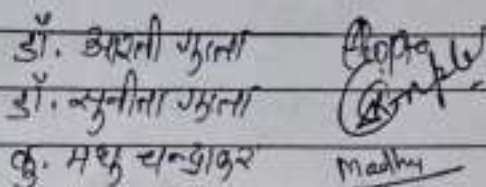 डॉ. आरती गुप्ता
डॉ. सुनीता गुप्ता
कु. मधु चन्द्राकर Madhu